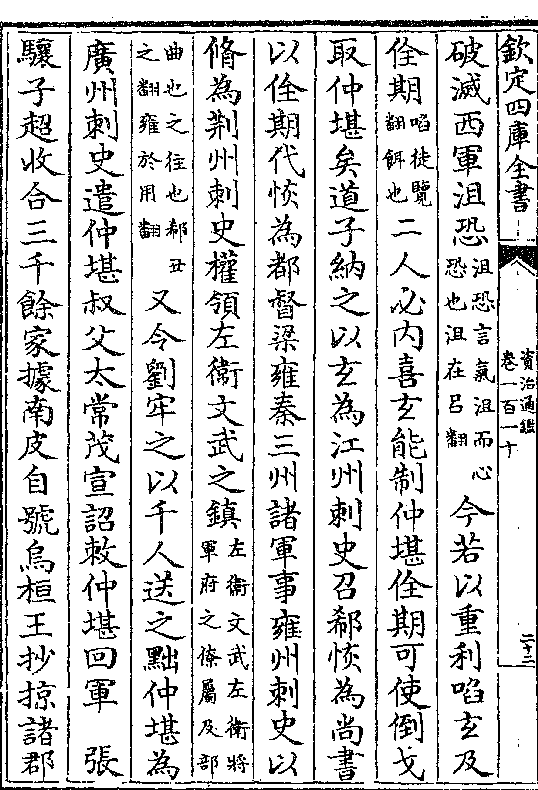 欽定四庫全書
資治通鑑
卷一百一十
二十三
破滅西軍沮恐沮恐言氣沮而心恐也沮在吕翻今若以重利啗玄及
佺期啗徒覽翻餌也二人必内喜玄能制仲堪佺期可使倒戈
取仲堪矣道子納之以玄為江州刺史召郗恢為尚書
以佺期代恢為都督梁雍秦三州諸軍事雍州刺史以
脩為荆州刺史權領左衞文武之鎮左衞文武左衞將軍府之僚屬及部
曲也之往也郗丑之翻雍於用翻又令劉牢之以千人送之黜仲堪為
廣州刺史遣仲堪叔父太常茂宣詔敕仲堪回軍　張
驤子超收合三千餘家據南皮自號烏桓王抄掠諸郡